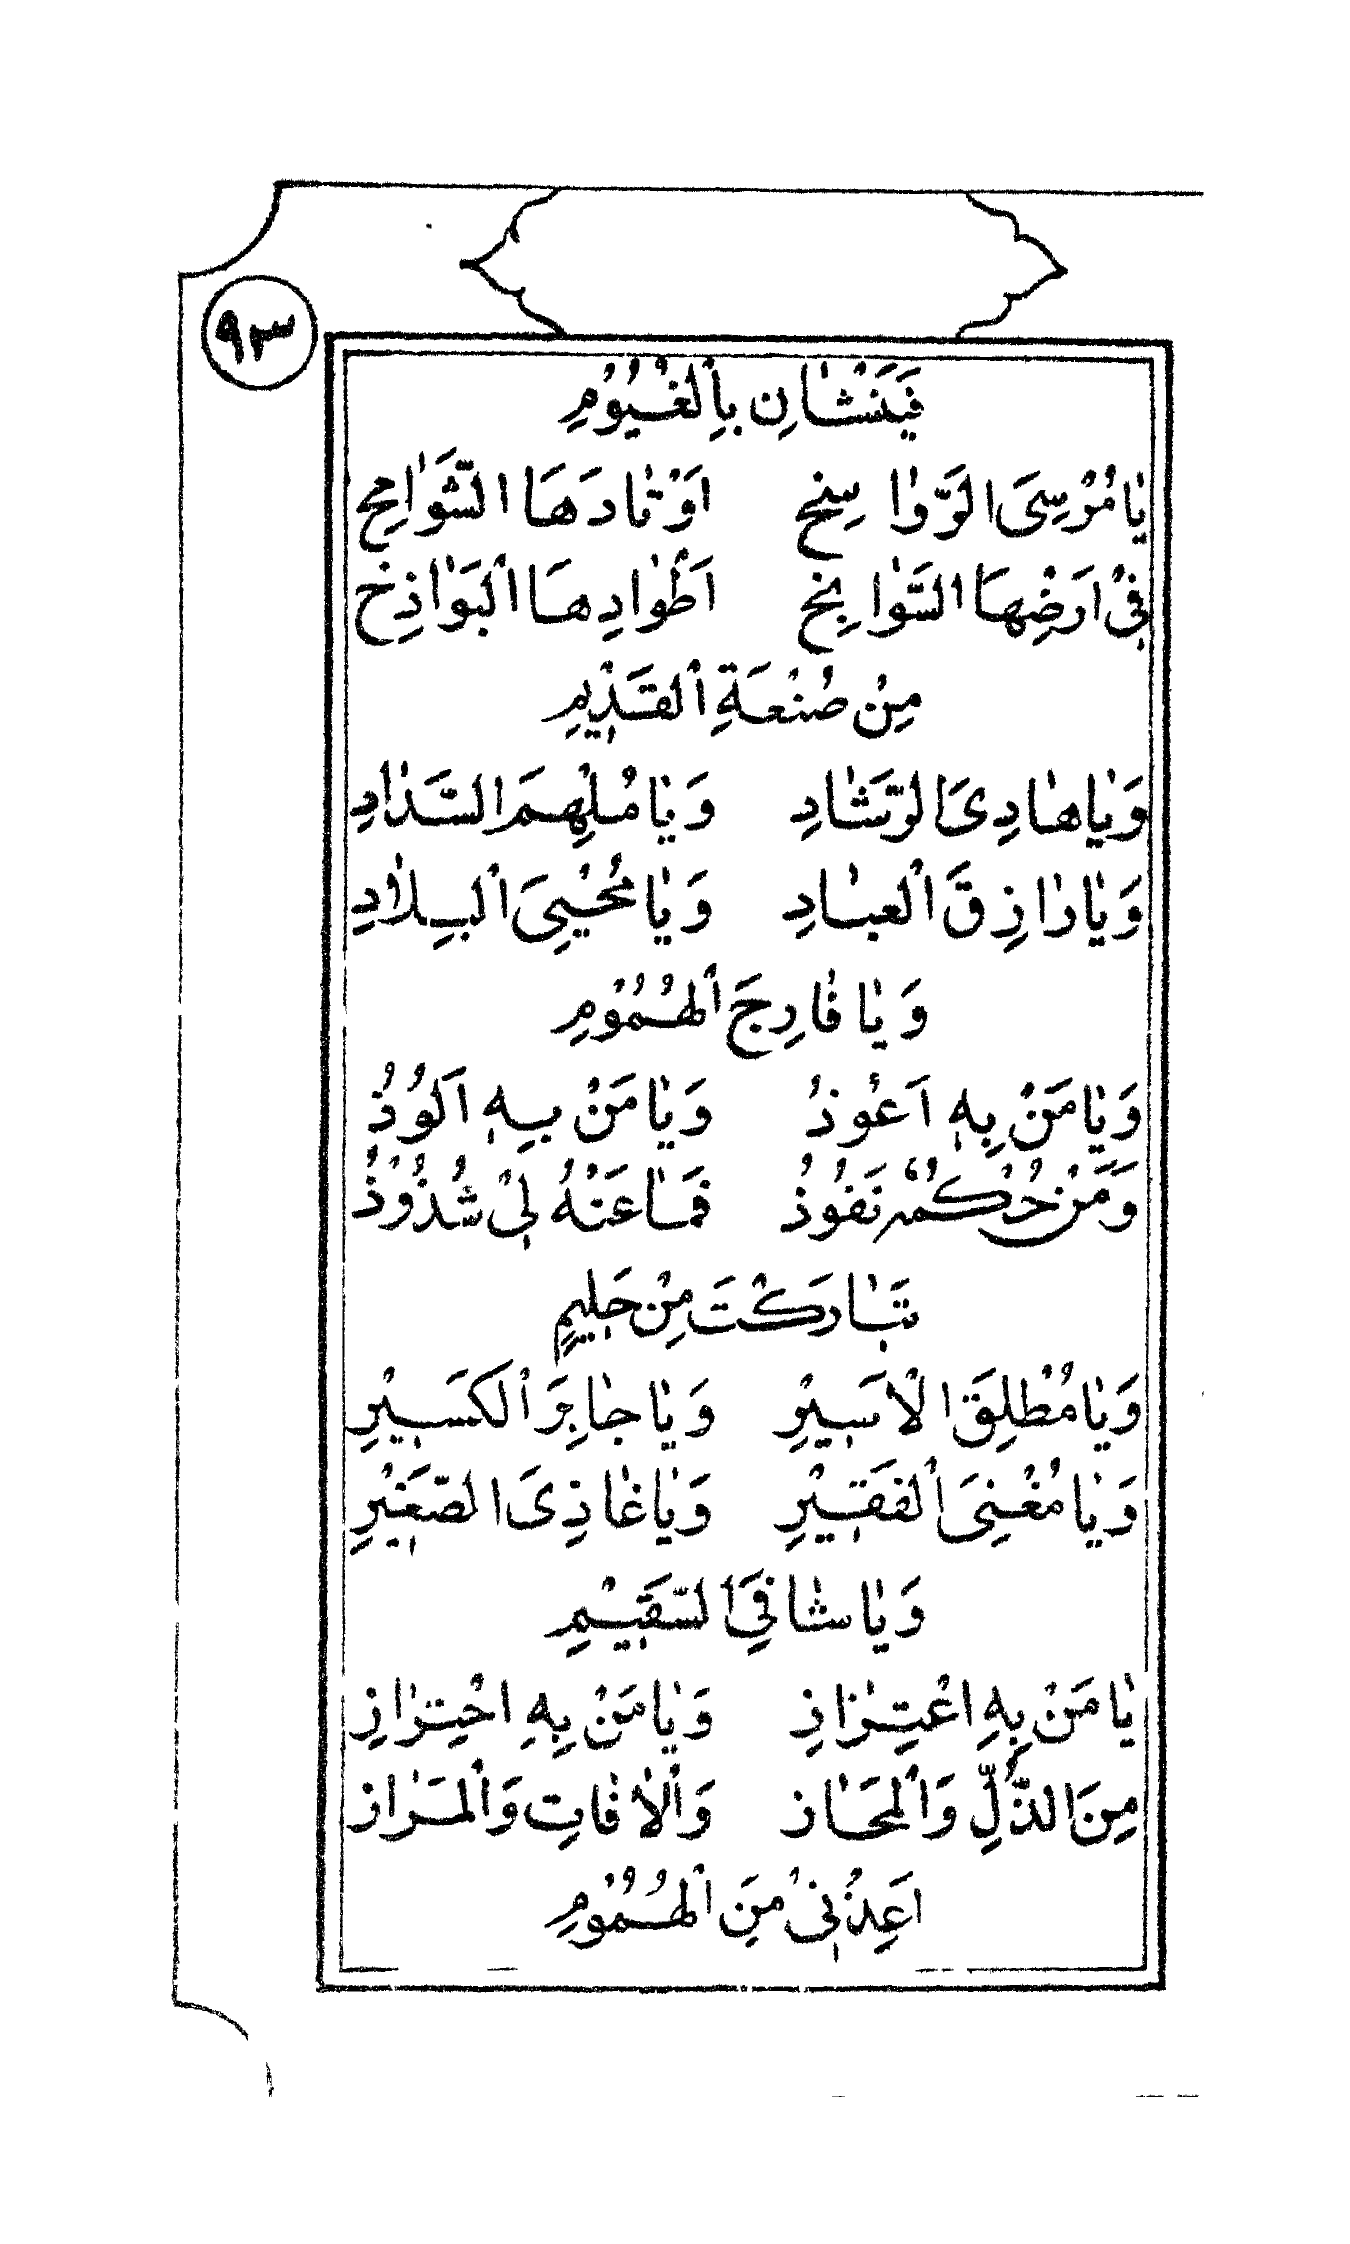 ٩٣
فَيَنْشَانِ بِالْغُيُوْمِ
يَا مُرْسِىَ الرَّوَا سِخِ اَوْتَادَهَا الشَّوَامِخِ
فِىْ اَرْضِهَا السَّوَابِخِ اَطْوَادِهَا الْبَوَاذِخِ
مِنْ صُنْعَةِ الْقَدِيْمِ
وَيَا هَادِىَ الرَّشَادِ وَيَا مُلْهِمَ السَّدَادِ
وَيَا رَازِقَ الْعِبَادِ وَيَا مُحْيِىَ الْبِلَادِ
وَيَا فَارِجَ الْهُمُوْمِ
وَيَا مَنْ بِهٖ اَعُوْذُ وَيَا مَنْ بِهٖ اَلُوْذُ
وَمَنْ حُكْمُهٗ نَفُوْذُ فَمَا عَنْهُ لِىْ شُذُوْذُ
تَبَارَكْتَ مِنْ حَلِيْمٍ
وَيَا مُطْلِقَ الْاَسِيْرِ وَيَا جَابِرَ الْكَسِيْرِ
وَيَا مُغْنِىَ الْفَقِيْرِ وَيَا غَاذِىَ الصَّغِيْرِ
وَيَا شَافِىَ السَّقِيْمِ
يَا مَنْ بِهِ اعْتِزَازِ وَيَا مَنْ بِهِ احْتِرَازِ
مِنَ الذُّلِّ وَالْمَخَازِ وَالْاٰفَاتِ وَالْمَرَازِ
اَعِذْنِىْ مِنَ الْهُمُوْمِ